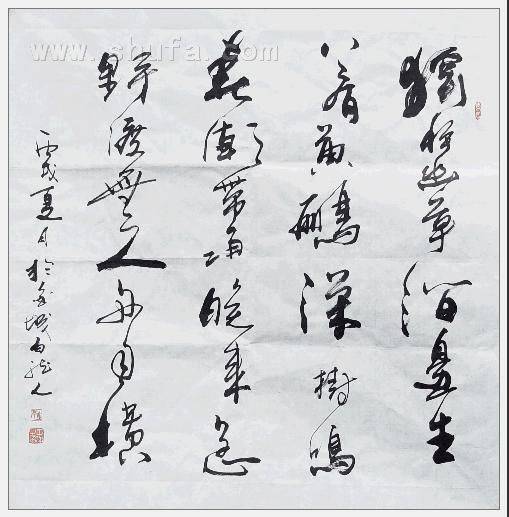 www.shufa.com
獨憐幽草澗邊生
上有黃鸝深樹鳴
春潮帶雨晚來急
野渡無人舟自橫
丙戌夏月於金城白